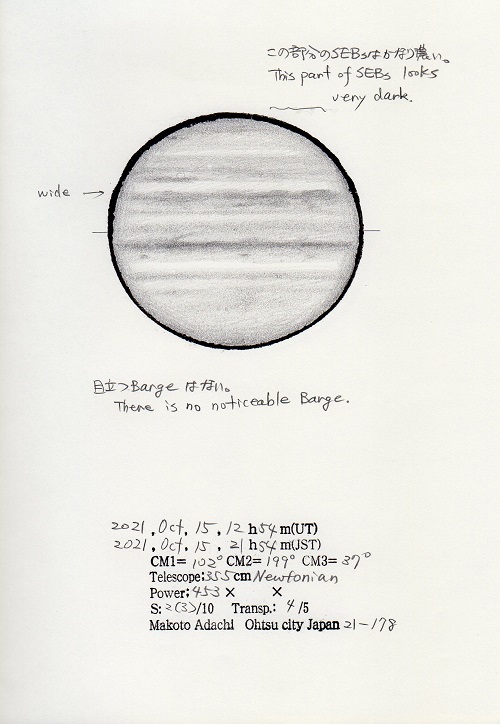 この部分のSEBsはかなり濃い。
This part of SEBs looks
very dark.
wide →
目立つBargeはない。
There is no noticeable Barge.
2021, Oct, 15, 12 h 54 m(UT)
2021, Oct, 15, 21 h 54 m(JST)
CM1= 102° CM2= 199° CM3= 37°
Telescope:355cm Newtonian
Power; 453 × ×
S: 2(3)/10 Transp.: 4/5
Makoto Adachi Ohtsu city Japan 21-178